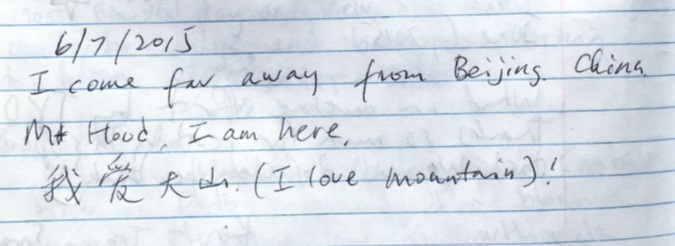 6/7/2015
I come far away from Beijing. China
Mt Hood, I am here,
我爱大山. (I love mountain)!